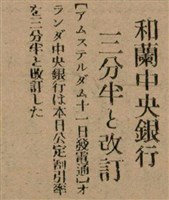 和蘭中央銀行
三分半と改訂
【アムステルダム十一日發電通】オ
ランダ中央銀行は本日公定割引率
を三分半と改訂した